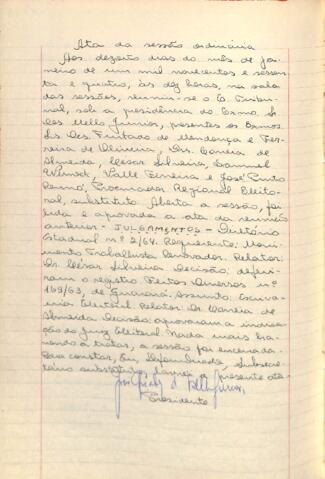 Ata da sessão ordinária
Aos dezoito dias do mês de ja-
neiro de um mil novecentos e sessen-
ta e quatro, às dez horas, na sala
das sessões, reuniu-se o E. Tribu-
nal, sob a presidência do Exmo. Sr.
Des. Mello Júnior, presentes os Exmos.
Srs. Des. Furtado de Mendonça e Fer-
reira de Oliveira, Drs. Correia de
Almeida, César Silveira,
Valle Ferreira e José Pinto
Renó, Procurador Regional Eleito-
ral, substituto. Aberta a sessão, foi
lida e aprovada a ata da reunião
anterior - JULGAMENTOS - Diretório
Estadual nº 2/64. Requerente: Movi-
mento Trabalhista Renovador. Relator:
Dr. César Silveira. Decisão: deferi-
ram o registro. Feitos Diversos nº
469/63, de Guarará. Assunto: Escriva-
nia Eleitoral. Relator: Dr. Correia de
Almeida. Decisão: aprovaram a indica-
ção do Juiz Eleitoral. Nada mais ha-
vendo a tratar, a sessão foi encerrada.
Para constar, Eu, Secre-
tário substituto, lavrei a presente ata.
Presidente